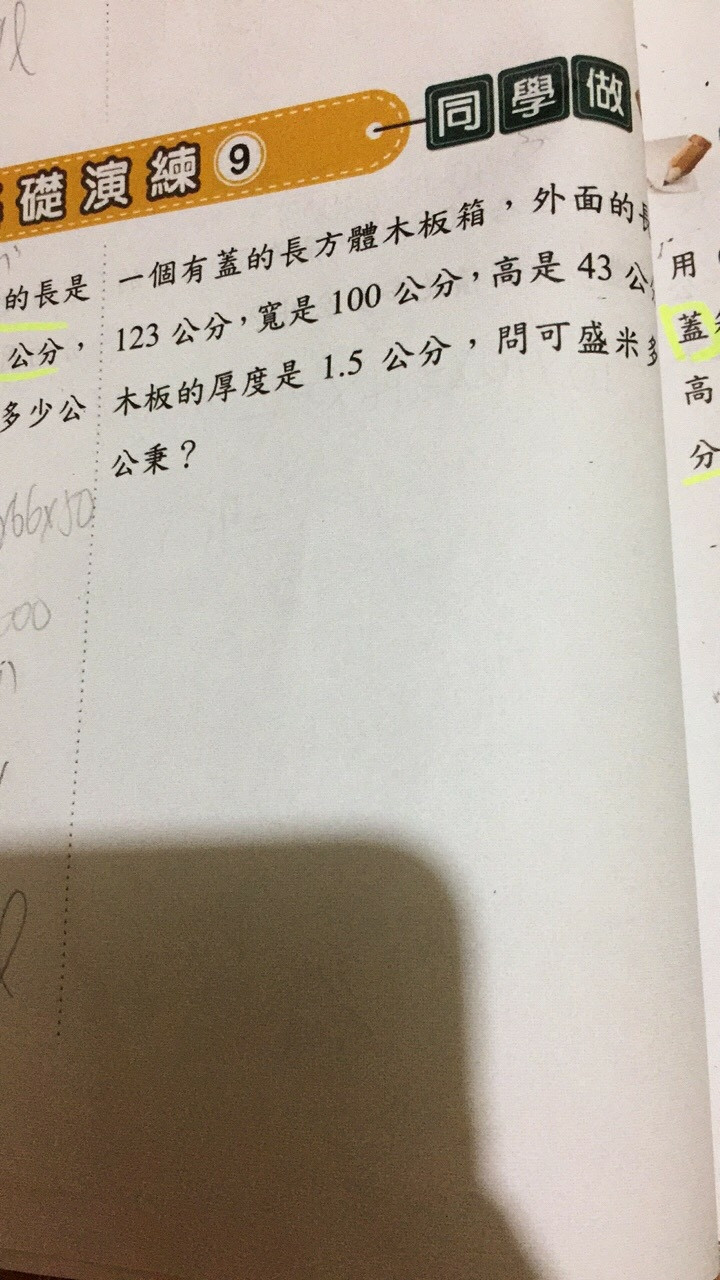 同學做
礎演練 9
的長是
公分，
多少公
一個有蓋的長方體木板箱，外面的長
123 公分，寬是 100 公分，高是 43 公
木板的厚度是 1.5 公分，問可盛米多
公秉？
x66x50
00
l
用
蓋
高
分